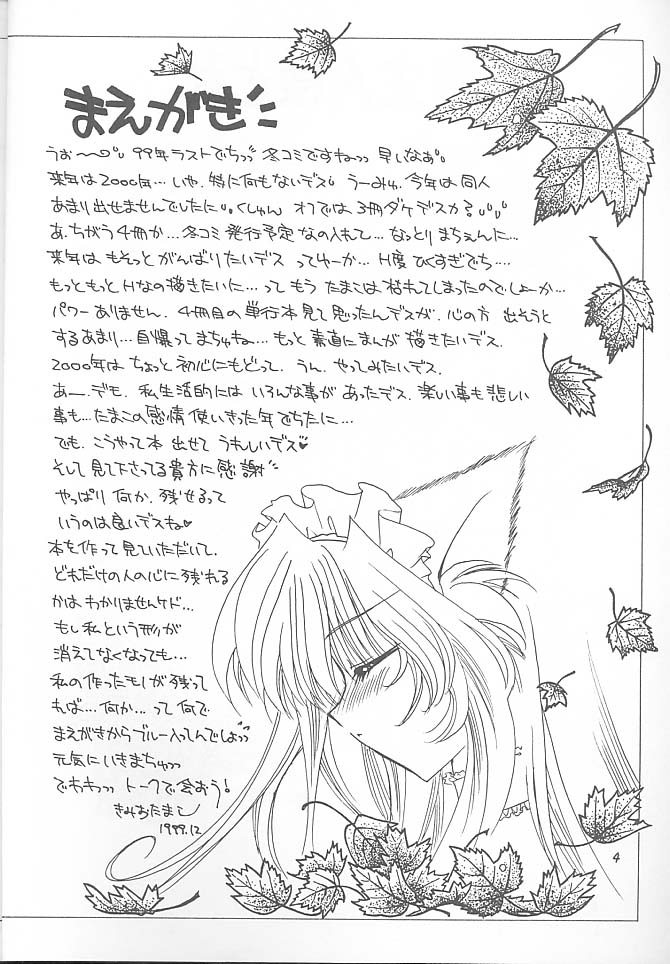 まえがき
うぉ～っ 99年ラストでちっ 冬コミですねっっ 早いなぁ
来年は2000年… いや、特に何もないデス うーみゅ、今年は同人
あまり出せませんでしたに くしゅん オフでは3冊ダケデスカ?
あ、ちがう4冊か… 冬コミ発行予定なの入れて… なっとりまちぇんに…
来年は もそっと がんばりたいデス って4ーか… H度 ひくすぎでち…
もっともっとHなの描きたいに… って もう たまこは 枯れてしまったのでしょーか…
パワー ありません、4冊目の単行本見て思ったんデスが、心の方 出そうと
するあまり… 自爆ってまちゅね… もっと素直にまんが 描きたいデス、
2000年は ちょっと 初心にもどって、うん、やってみたいデス、
あー、デモ、私生活的には いろんな事が あったデス、楽しい事も 悲しい
事も… たまこの感情 使いきった年でちたに…
でも、こうやって本 出せて うれしいデス♥
そして 見て下さってる貴方に感謝
やっぱり 何か、残せるって
いうのは良いデスね♥
本を作って見ていただいて、
どれだけの人の心に残れる
かは わかりませんケド…
もし私という形が
消えてなくなっても…
私の作ったモノが残って
れば… 何か… って何で
まえがきからブルー入ってんでしょっっ
元気にいきまちゅっっ
でわわっっ トークで会おう!
きみおたまこ
1999.12
4